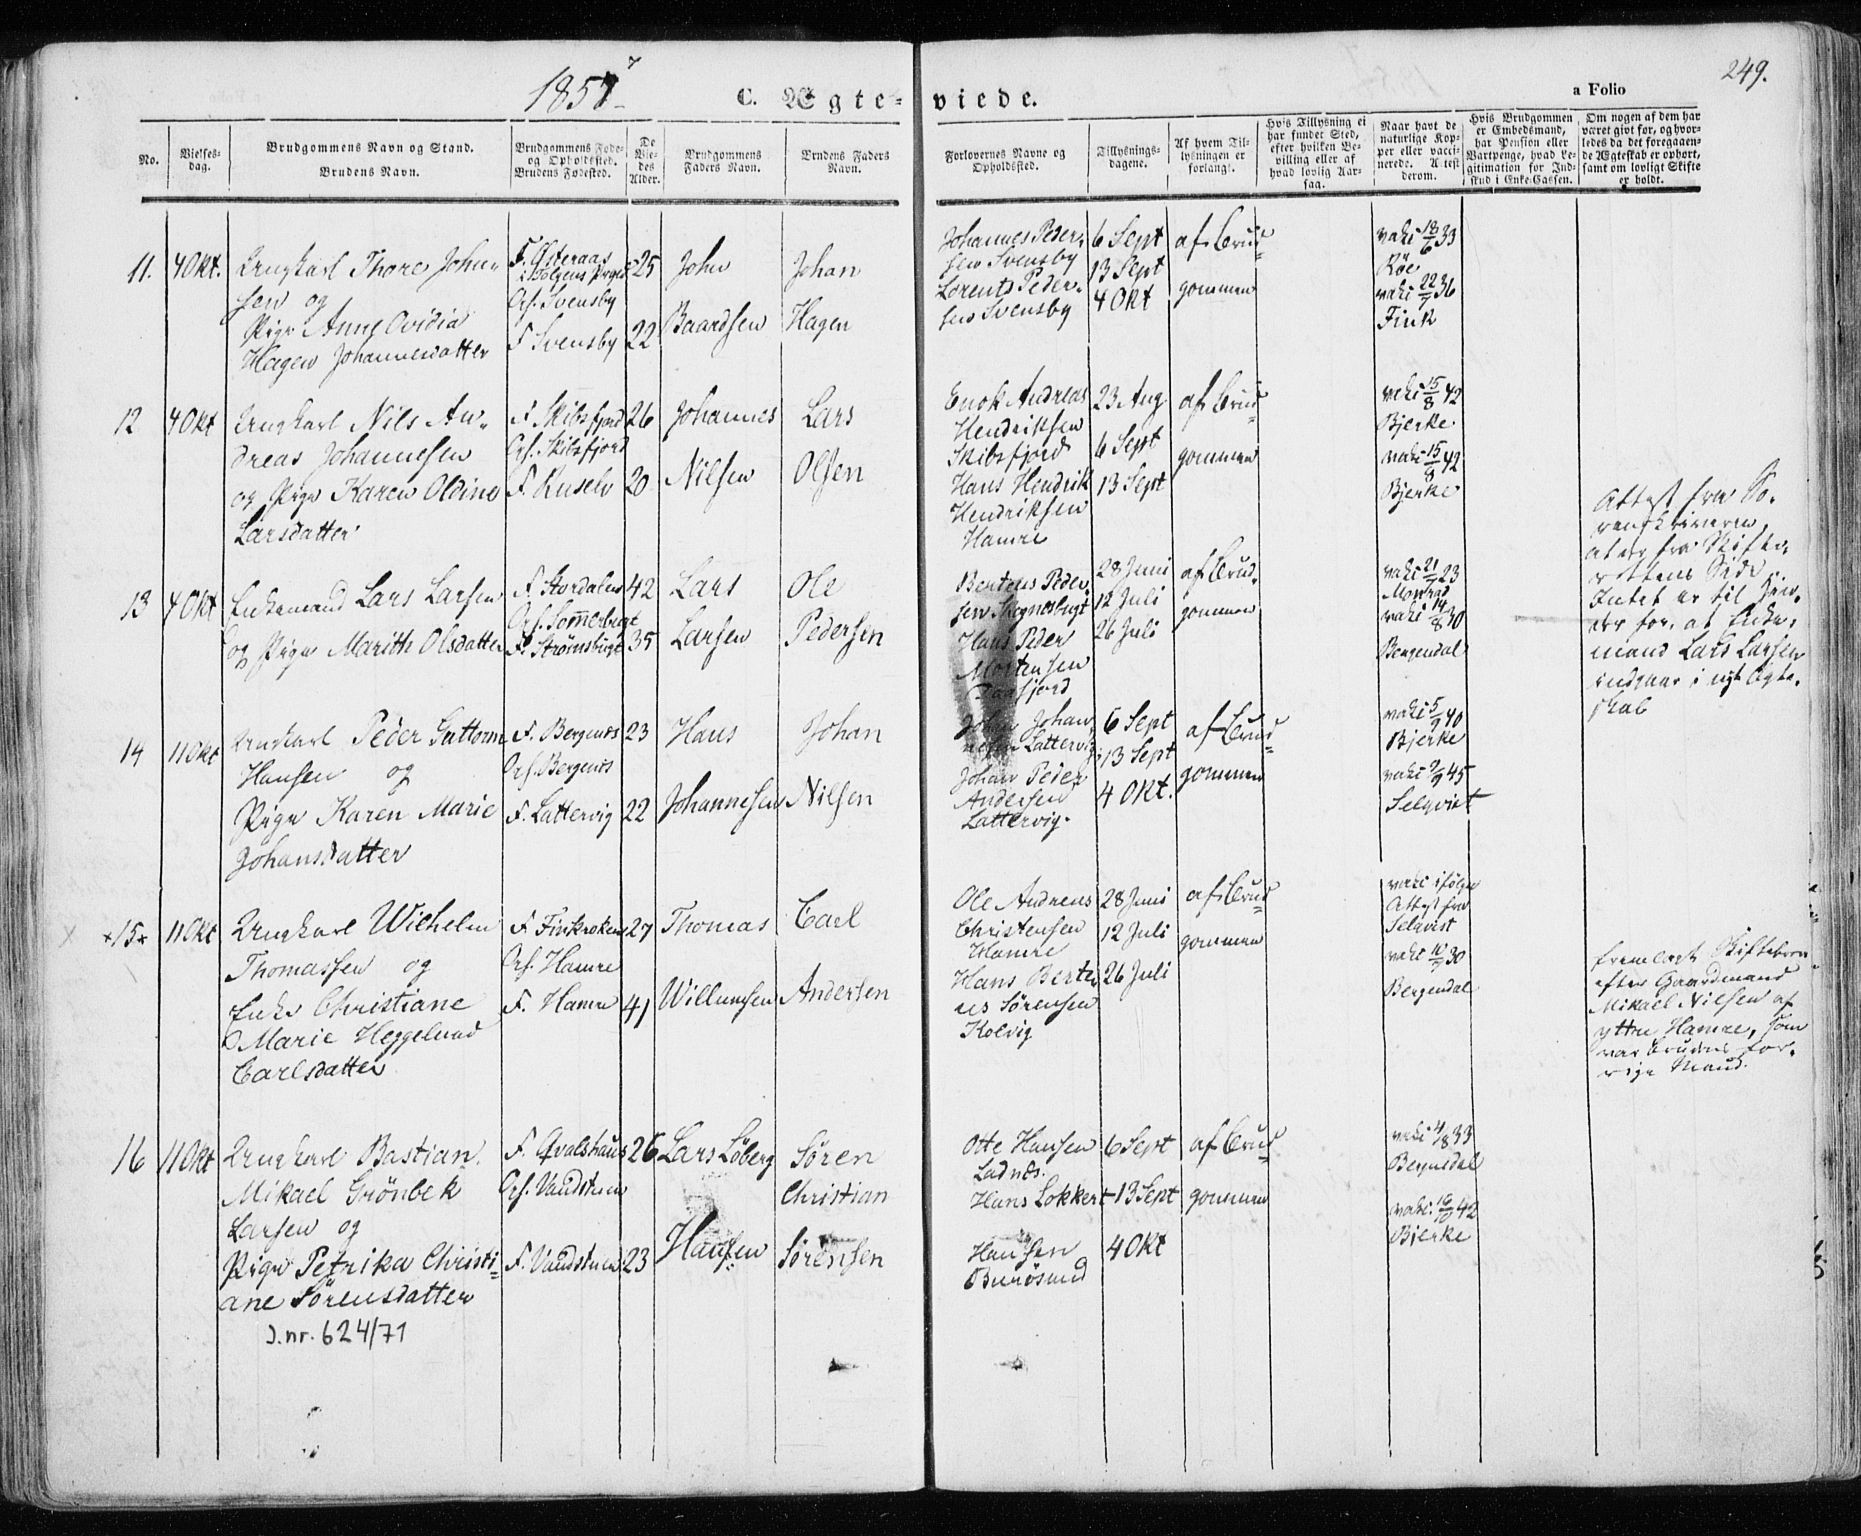 1857
7
C. Ægte-viede.
a Folio
249.
No.
Vielses-
dag.
Brudgommens Navn og Stand.
Brudens Navn.
Brudgommens Føde-
og Opholdssted.
Brudens Fødested.
De
Vie-
des
Alder.
Brudgommens
Faders Navn.
Brudens Faders
Navn.
Forlovernes Navne og
Opholdssted.
Tillysnings-
dagene.
Af hvem Til-
lysningen er
forlangt.
Hvis Tillysning ei
har fundet Sted,
efter hvilken Be-
villing eller af
hvad lovlig Aar-
sag.
Naar havt de
naturlige Kop-
per eller vacci-
nerede. Attest
derom.
Hvis Brudgommen
er Embedsmand,
har Pension eller
Vartpenge, hvad Le-
gitimation for Ind-
skud i Enke-Cassen.
Om nogen af dem har
været givt før, og hvor-
ledes da det foregaaen-
de Ægteskab er ophørt,
samt om lovligt Skifte
er holdt.
11. 4 Okt. Ungkarl Thore John-
sen og
Pige Anne Ovidia
Hagen Johannesdatter
F. Østeraas
Oph. Svensby
F Svensby
25
22
John
Baardsen
Johan
Hagen
Johannes Peder-
sen Svensby
Lorents Peder-
sen Svensby
6 Sept
13 Sept
4 Okt
af Brud-
gommen
vaki 18/6 33
Röe
vaki 22/7 36
Fink
12 4 Okt Ungkarl Nils An-
dreas Johannesen
og Pige Karen Oldine
Larsdatter
F. Skibsfjord
Oph. Skibsfjord
F. Ruselv
26
20
Johannes
Nilsen
Lars
Olsen
Enok Andreas
Hendriksen
Skibsfjord
Hans Hendrik
Hendriksen
Hamre
23 Aug
6 Sept
13 Sept
af Brud-
gommen
vaki 15/8 42
Bjerke
vaki 15/8 42
Bjerke
13 4 Okt Enkemand Lars Larsen
og Pige Marith Olsdatter
F. Stordalen
Oph. Sommerbugt
F. Strømsbugt
42
35
Lars
Larsen
Ole
Pedersen
Bertens Peder-
sen Skognesbugt
Hans Peder
Mortensen
28 Juni
12 Juli
26 Juli
af Brud-
gommen
vaki 21/7 23
Monrad
vaki 14/8 30
Bergendal
Attest fra So-
renskriveren
at der fra Skifte-
rettens Side
Intet er til Hin-
der for, at Enke-
mand Lars Larsen
indgaar i nyt Ægte-
skab
14 11 Okt Ungkarl Peder Guttorm
Hansen og
Pige Karen Marie
Johansdatter
F. Bergenes
Oph. Bergenes
F. Lattervig
23
22
Hans
Johannesen
Johan
Nilsen
Johan Johan-
nesen Lattervig
Johan Peder
Andersen
Lattervig.
6 Sept
13 Sept
4 Okt.
af Brud-
gommen
vaki 5/9 40
Bjerke
vaki 9/9 45
Selqvist
15 11 Okt Ungkarl Wilhelm
Thomassen og
Enke Christiane
Marie Heggelund
Carlsdatter
F. Finkroken
Oph. Hamre
F. Hamre
27
41
Thomas
Willumsen
Carl
Andersen
Ole Andreas
Christensen
Hamre
Hans Berti-
nes Sørensen
Kolvig
28 Juni
12 Juli
26 Juli
af Brud-
gommen
vaki ifølge
Attest fra
Selqvist
vaki 10/7 30
Bergendal
fremlagt Skiftebrev
efter Gaardmand
Mikael Nilsen af
yttre Hamre, som
var Brudens for-
rige Mand.
16 11 Okt Ungkarl Bastian
Mikael Grönbek
Larsen og
Pige Petrika Christi-
ane Sörensdatter
J.nr. 624/71
F. Qvalshaus
Oph. Vandstuen
F. Vandstuen
26
23
Lars Løberg
Hansen
Søren
Christian
Sørensen
Otte Hansen
Ladnes.
Hans Lokkert
Hansen
Burøsund
6 Sept
13 Sept
4 Okt
af Brud-
gommen
vaki 4/8 33
Bergendal
vaki 16/10 42
Bjerke